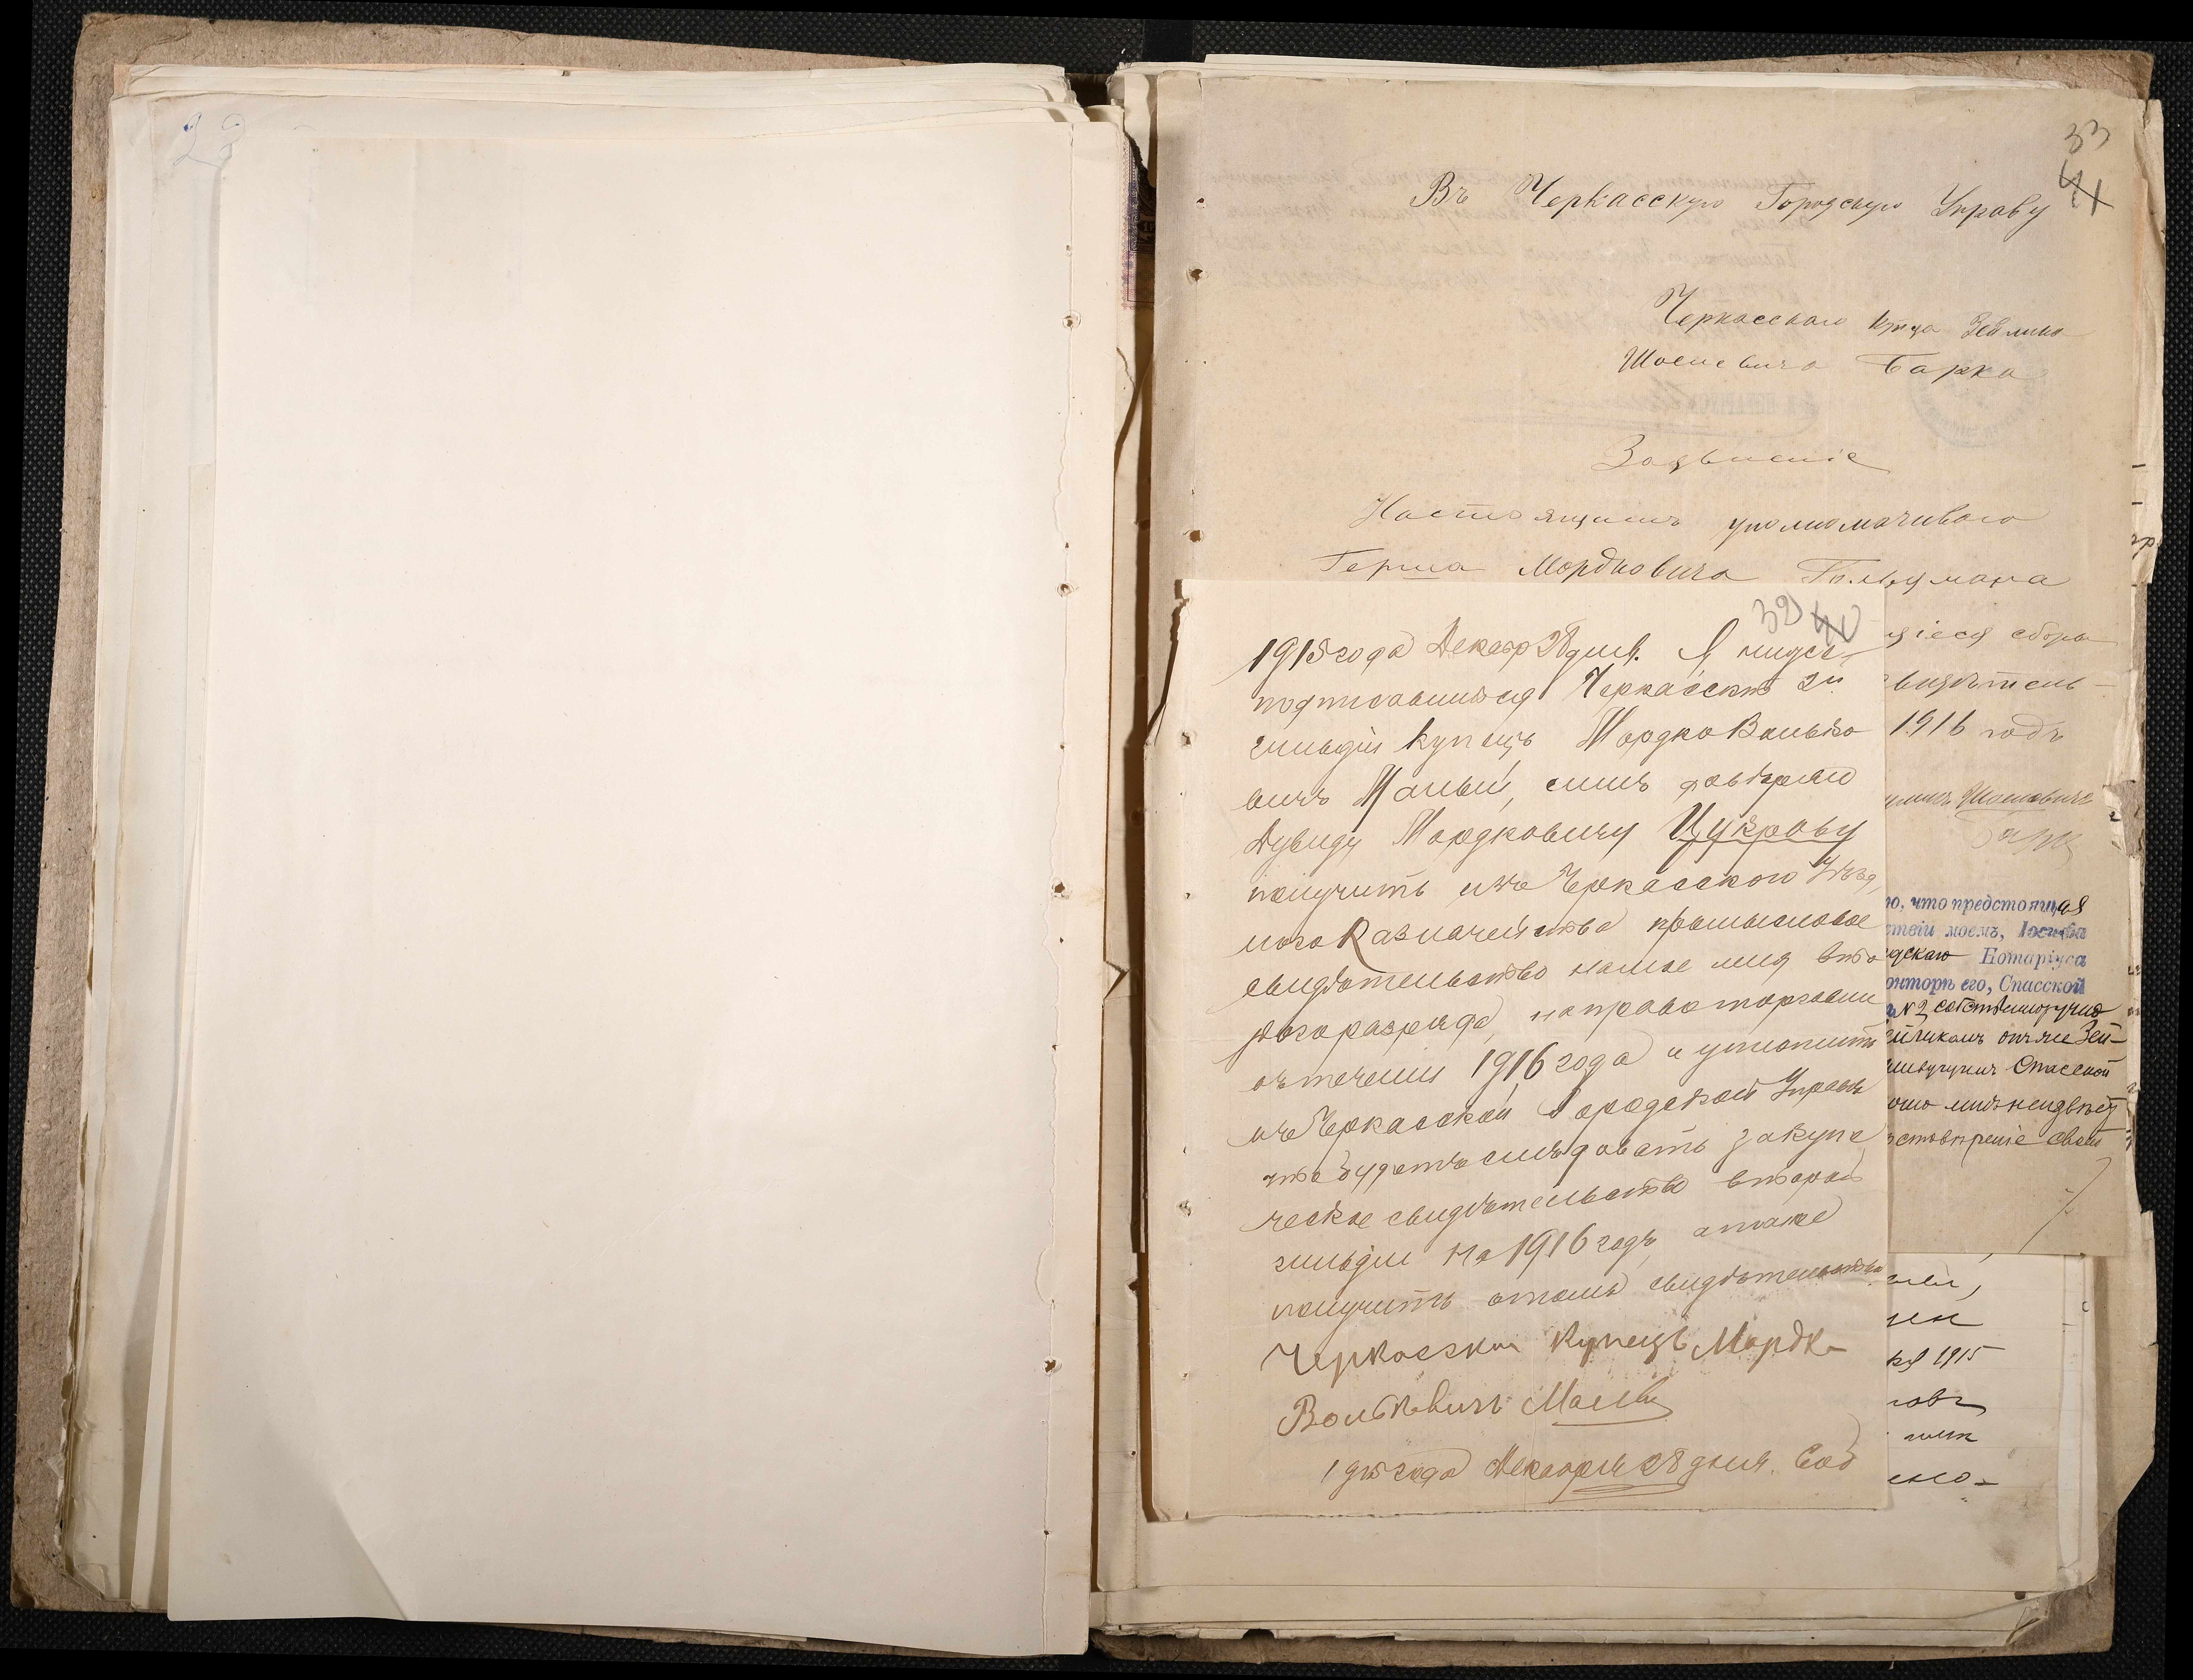 33
41
Въ Черкасскую Городскую Управу
Черкасскаго купца Зейлика
Шоелевича Барка
Заявленіе
Настоящимъ уполномачиваю
Герша Мордковича Гольцмана
щіеся сбора
свидѣтель-
1916 годъ
Шоелевичъ
Барк
ю, что предстоящая
ствіи моемъ, Іосифа
дскаго Нотаріуса
онторѣ его, Спасской
№ 2, собственноручно
Зей-
Спасской
 
39 40
1915 года Декабр 28 дня. Я нижe
подписавшійся Черкасскій 2й
гильдіи купецъ Мордко Волько
вичъ Малый, симъ довѣряю
Дувиду Мордковичу Цукрову
получить изъ Черкасского Уѣзд
ного Казначейства промысловое
свидѣтельство на мое имя вто
рого разряда, на право торговли
въ теченіи 1916 года и уплотить
въ Черкасской Городской Управѣ
что будетъ слѣдовать за купе
ческое свидѣтельство второй
гильдіи на 1916 годъ, а также
получить свидѣтельство
Черкасский Купецъ Мордко
Волькович Малый
1915 года Декабря 28 дня.
1915